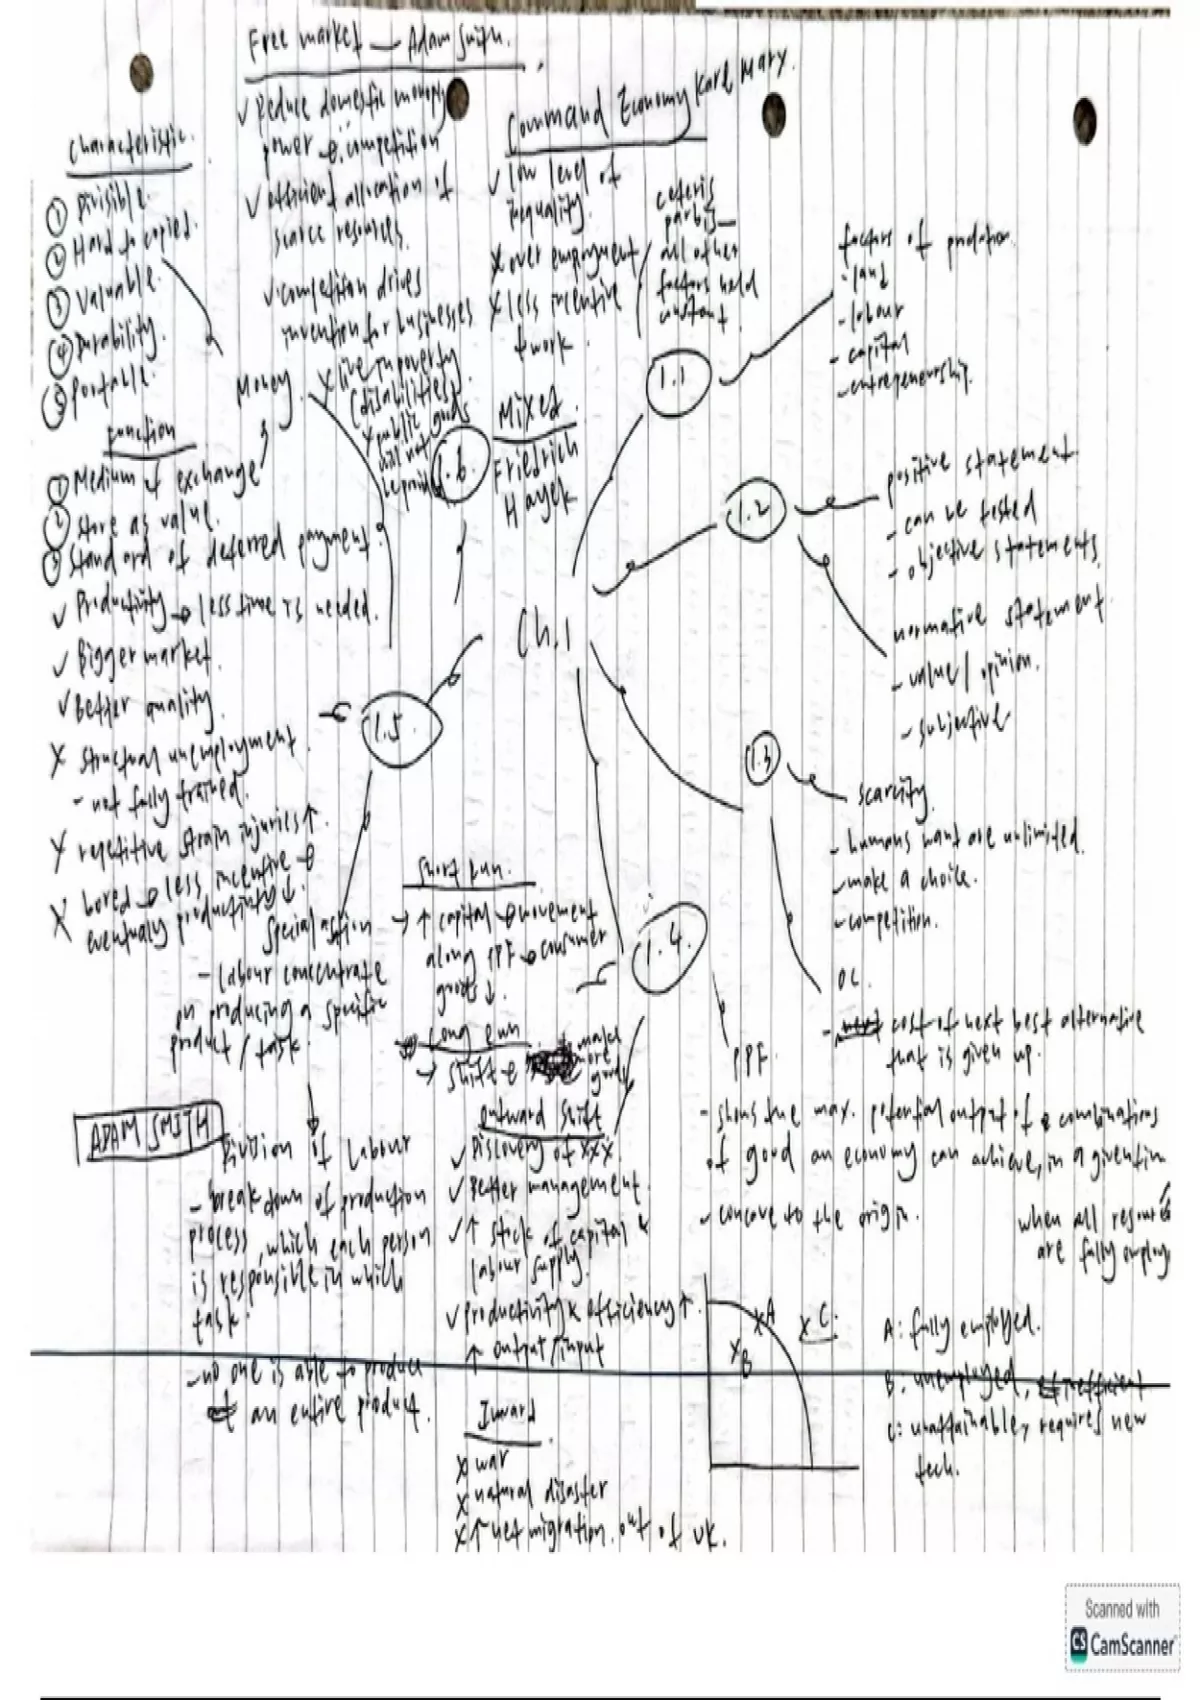 Free market — Adam Smith.
✓ Reduce domestic monopoly
power & competition
✓ efficient allocation of
scarce resources.
✓ competition drives
invention for businesses
X live in poverty
(disabilities)
X public goods
will not
be
Command Economy Karl Mary.
✓ low level of
inequality.
X over employment
X less incentive
t work.
ceteris
all other
factors held
constant.
Mixed
Friedrich
Hayek
1.6
characteristic.
① Divisible.
② Hard to copied.
③ Valuable.
④ Durability.
⑤ portable.
Money.
function
① Medium of exchange
② Store as value.
③ Standard of deferred payment.
✓ Productivity → less time is needed.
✓ Bigger market.
✓ Better quality.
X structual unemployment.
- not fully trained.
X repetitive strain injuries ↑.
X bored → less incentive &
eventualy productivity ↓.
Ch.1
1.1
factors of
- land
- labour
- capital
- entrepenership.
1.2
positive statement.
- can be tested
- objective statements.
normative statement.
- value / opinion.
- subjective
1.3
scarcity.
- humans want are unlimited.
- make a choice.
- competition.
OC.
- cost of next best alternative
that is given up.
1.4.
PPF.
- shows the max. potential output of 2 combinations
of good an economy can achieve, in a given tim
when all resources
are fully employ
- concave to the origin.
A
B
C.
A: fully employed.
B: unemployed, inefficient
C: unattainable, requires new
tech.
short run.
→ ↑ capital → movement
along PPF → consumer
goods ↓.
Long run
→ shift
more
goods
outward shift
✓ Discovery of xxx.
✓ Better management.
✓ ↑ stock of capital &
labour supply.
✓ productivity & efficiency ↑.
↑ output / input
Inward.
X war
X natural disaster
X ↑ net migration out of UK.
1.5.
- Labour concentrate
on producing a specific
product / task.
ADAM SMITH
Division of Labour
- break down of production
process, which each person
is responsible in which
task.
- no one is able to produce
an entire product.
Scanned with
CS CamScanner